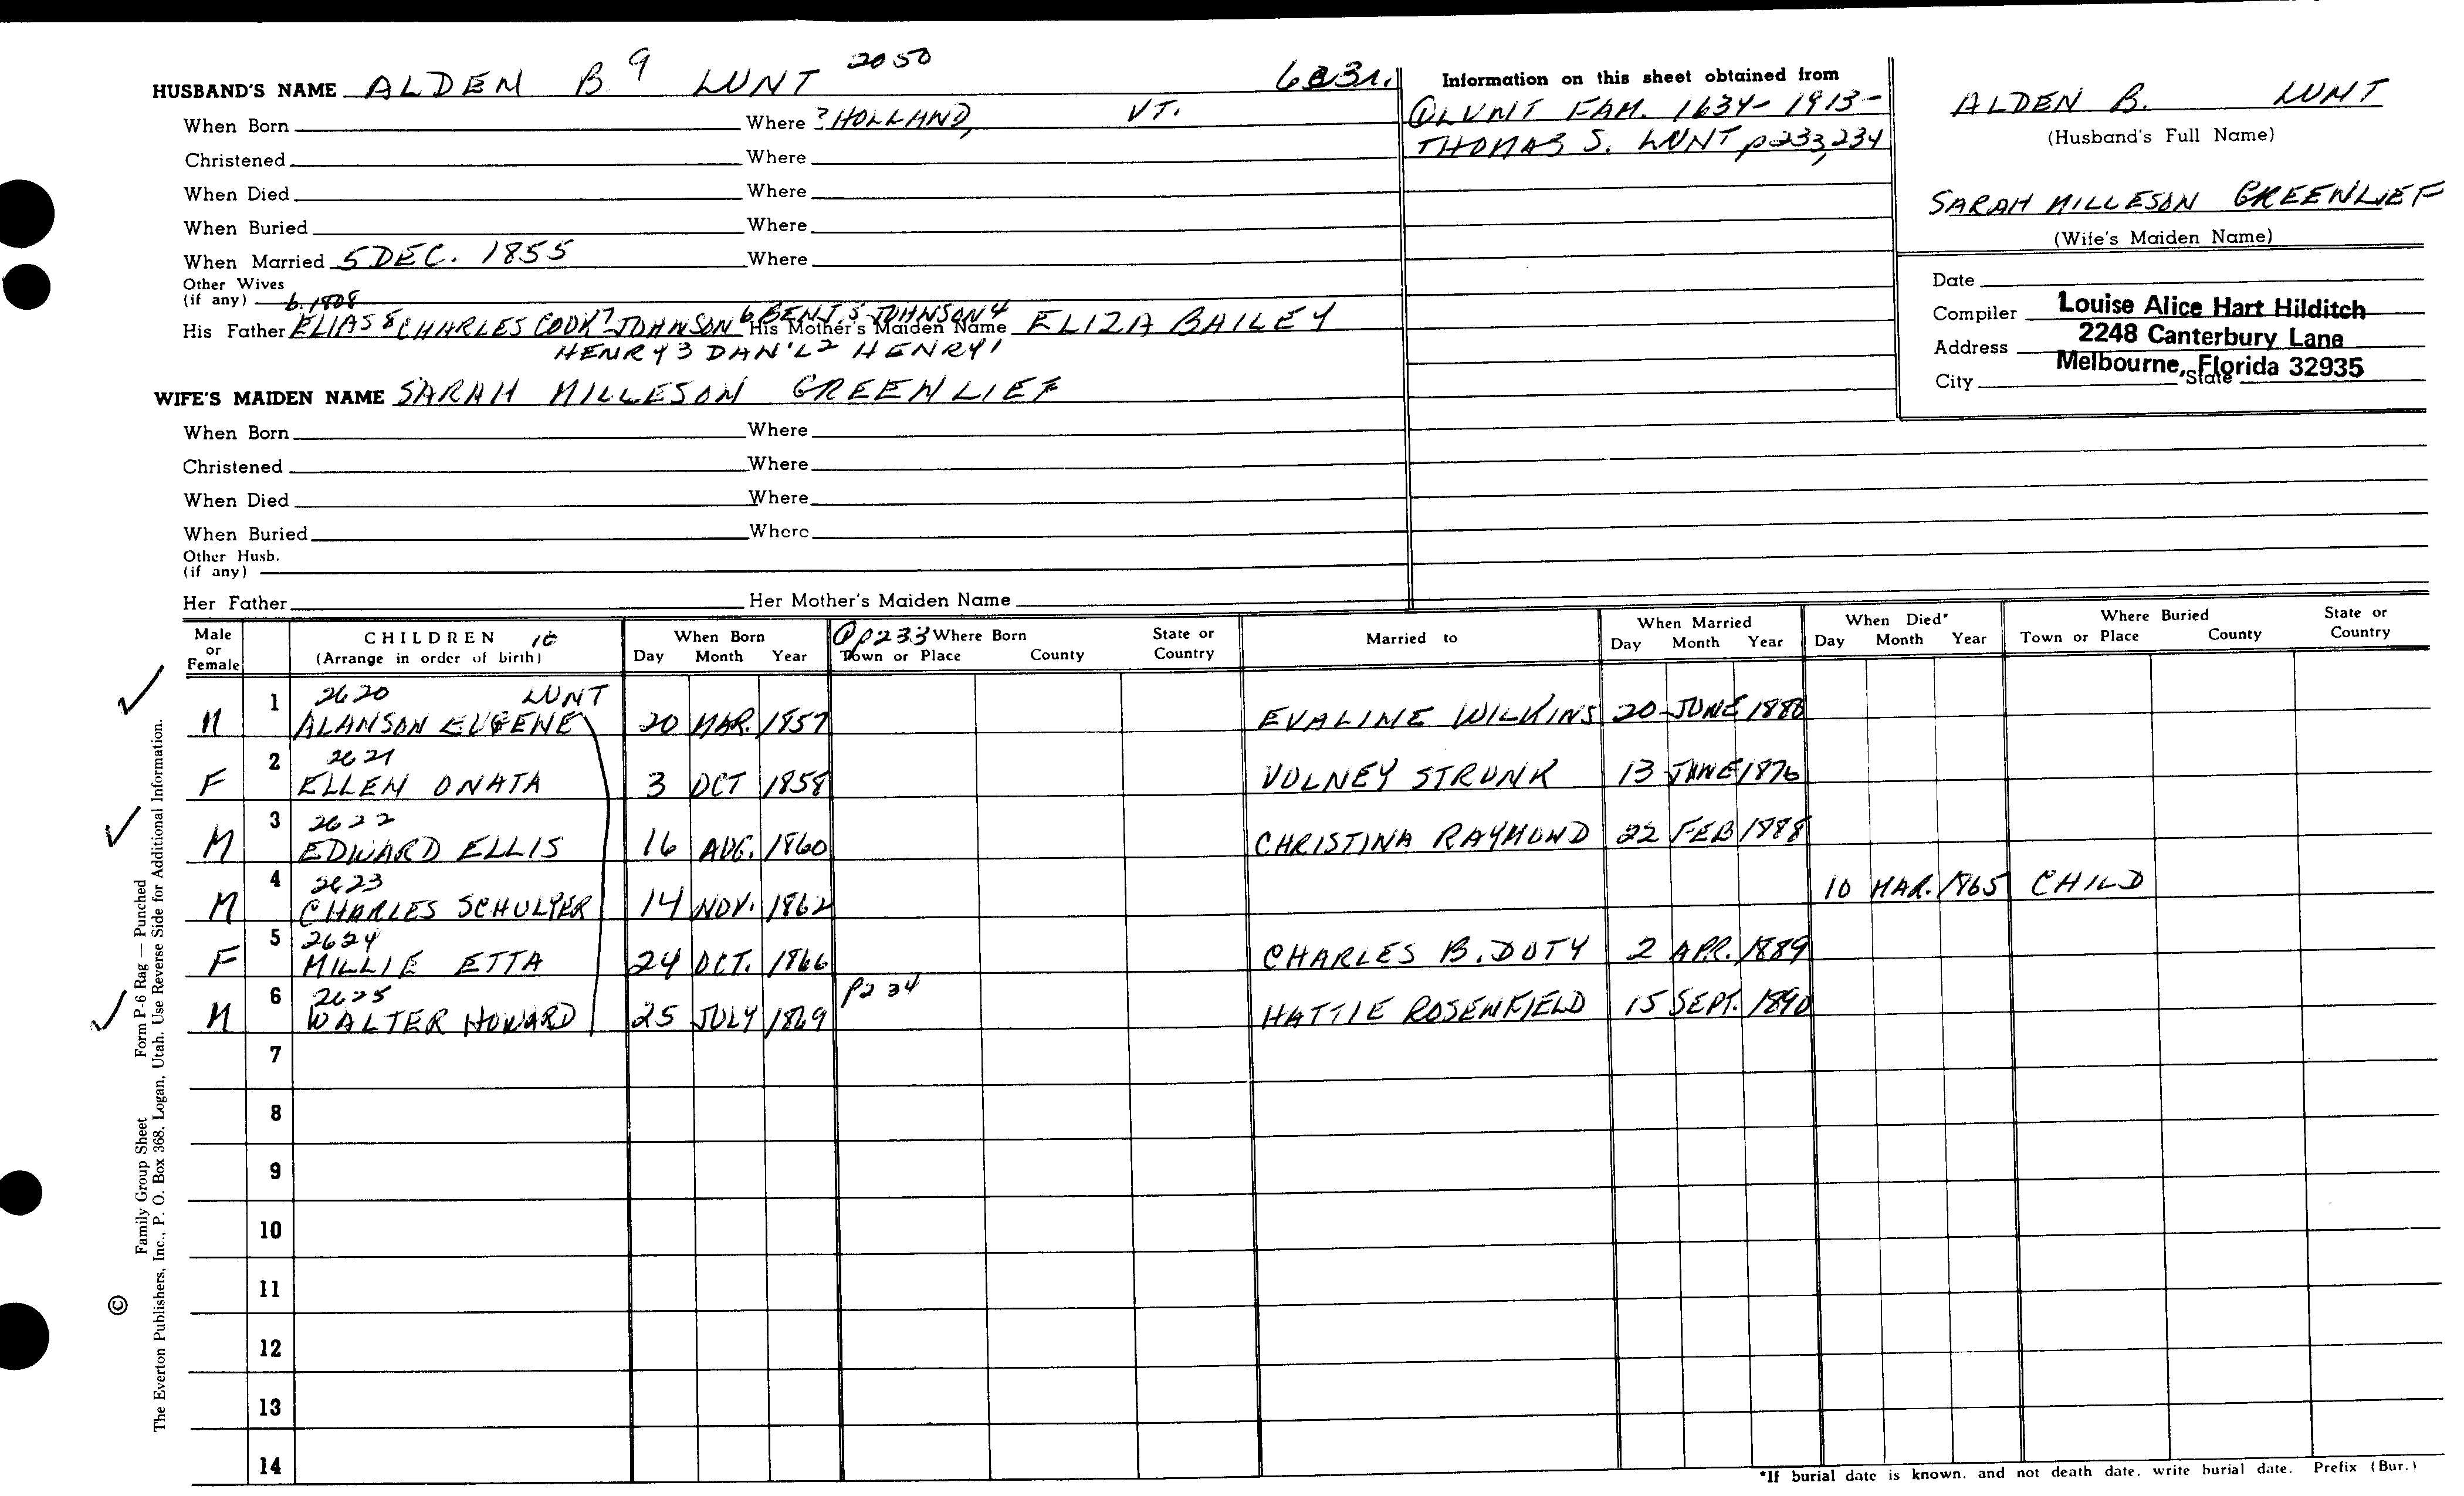 HUSBAND'S NAME ALDEN B. 9 LUNT 2050
When Born Where ? HOLLAND, VT.
Christened Where
When Died Where
When Buried Where
When Married 5 DEC. 1855 Where
Other Wives
(if any) b. 1808
His Father ELIAS 8 CHARLES COOK 7 JOHNSON 6 BENJ. 5 JOHNSON 4 His Mother's Maiden Name ELIZA BAILEY
HENRY 3 DAN'L 2 HENRY 1
WIFE'S MAIDEN NAME SARAH MILLESON GREENLIEF
When Born Where
Christened Where
When Died Where
When Buried Where
Other Husb.
(if any)
Her Father Her Mother's Maiden Name
Information on this sheet obtained from
① LUNT FAM. 1634-1913-
THOMAS S. LUNT p233,234
ALDEN B. LUNT
(Husband's Full Name)
SARAH MILLESON GREENLIEF
(Wife's Maiden Name)
Date
Compiler Louise Alice Hart Hilditch
Address 2248 Canterbury Lane
City Melbourne, Florida 32935 State
Male or Female CHILDREN (Arrange in order of birth) When Born Day Month Year ① p233 Where Born Town or Place County State or Country Married to When Married Day Month Year When Died* Day Month Year Where Buried Town or Place County State or Country
2620 LUNT
M 1 ALANSON EUGENE 20 MAR. 1857 EVALINE WILKINS 20 JUNE 1880
2621
F 2 ELLEN ONATA 3 OCT 1858 VOLNEY STRUNK 13 JUNE 1876
2622
M 3 EDWARD ELLIS 16 AUG. 1860 CHRISTINA RAYMOND 22 FEB 1888
2623
M 4 CHARLES SCHULYER 14 NOV. 1862 10 MAR. 1865 CHILD
2624
F 5 MILLIE ETTA 24 OCT. 1866 CHARLES B. DOTY 2 APR. 1889
2625 p234
M 6 WALTER HOWARD 25 JULY 1869 HATTIE ROSENFIELD 15 SEPT. 1890
7
8
9
10
11
12
13
14
*If burial date is known, and not death date, write burial date. Prefix (Bur.)
© Family Group Sheet Form P-6 Rag — Punched
The Everton Publishers, Inc., P. O. Box 368, Logan, Utah. Use Reverse Side for Additional Information.